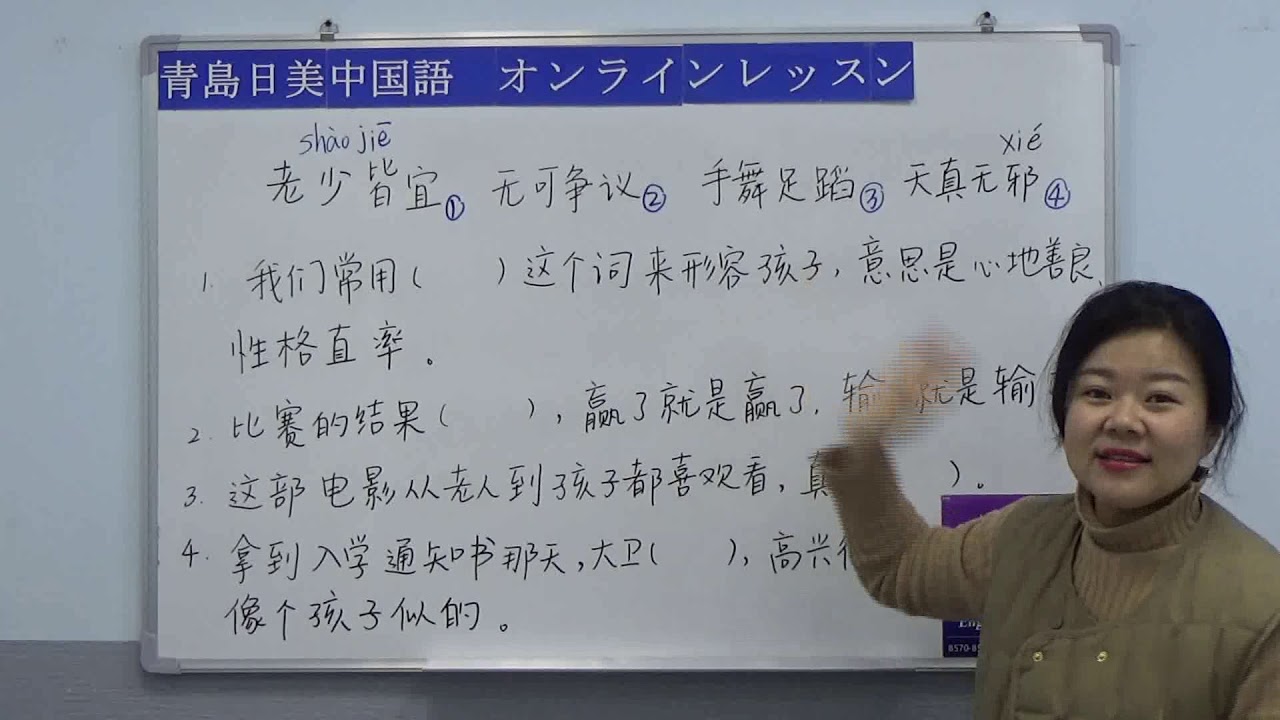 青島日美中国語 オンラインレッスン
shào jiē xié
老少皆宜① 无可争议② 手舞足蹈③ 天真无邪④
1. 我们常用( )这个词来形容孩子，意思是心地善良、
性格直率。
2. 比赛的结果( )，赢了就是赢了，输 就是输
3. 这部电影从老人到孩子都喜观看，真 )。
4. 拿到入学通知书那天，大卫( )，高兴
像个孩子似的。
Eng
8570-8